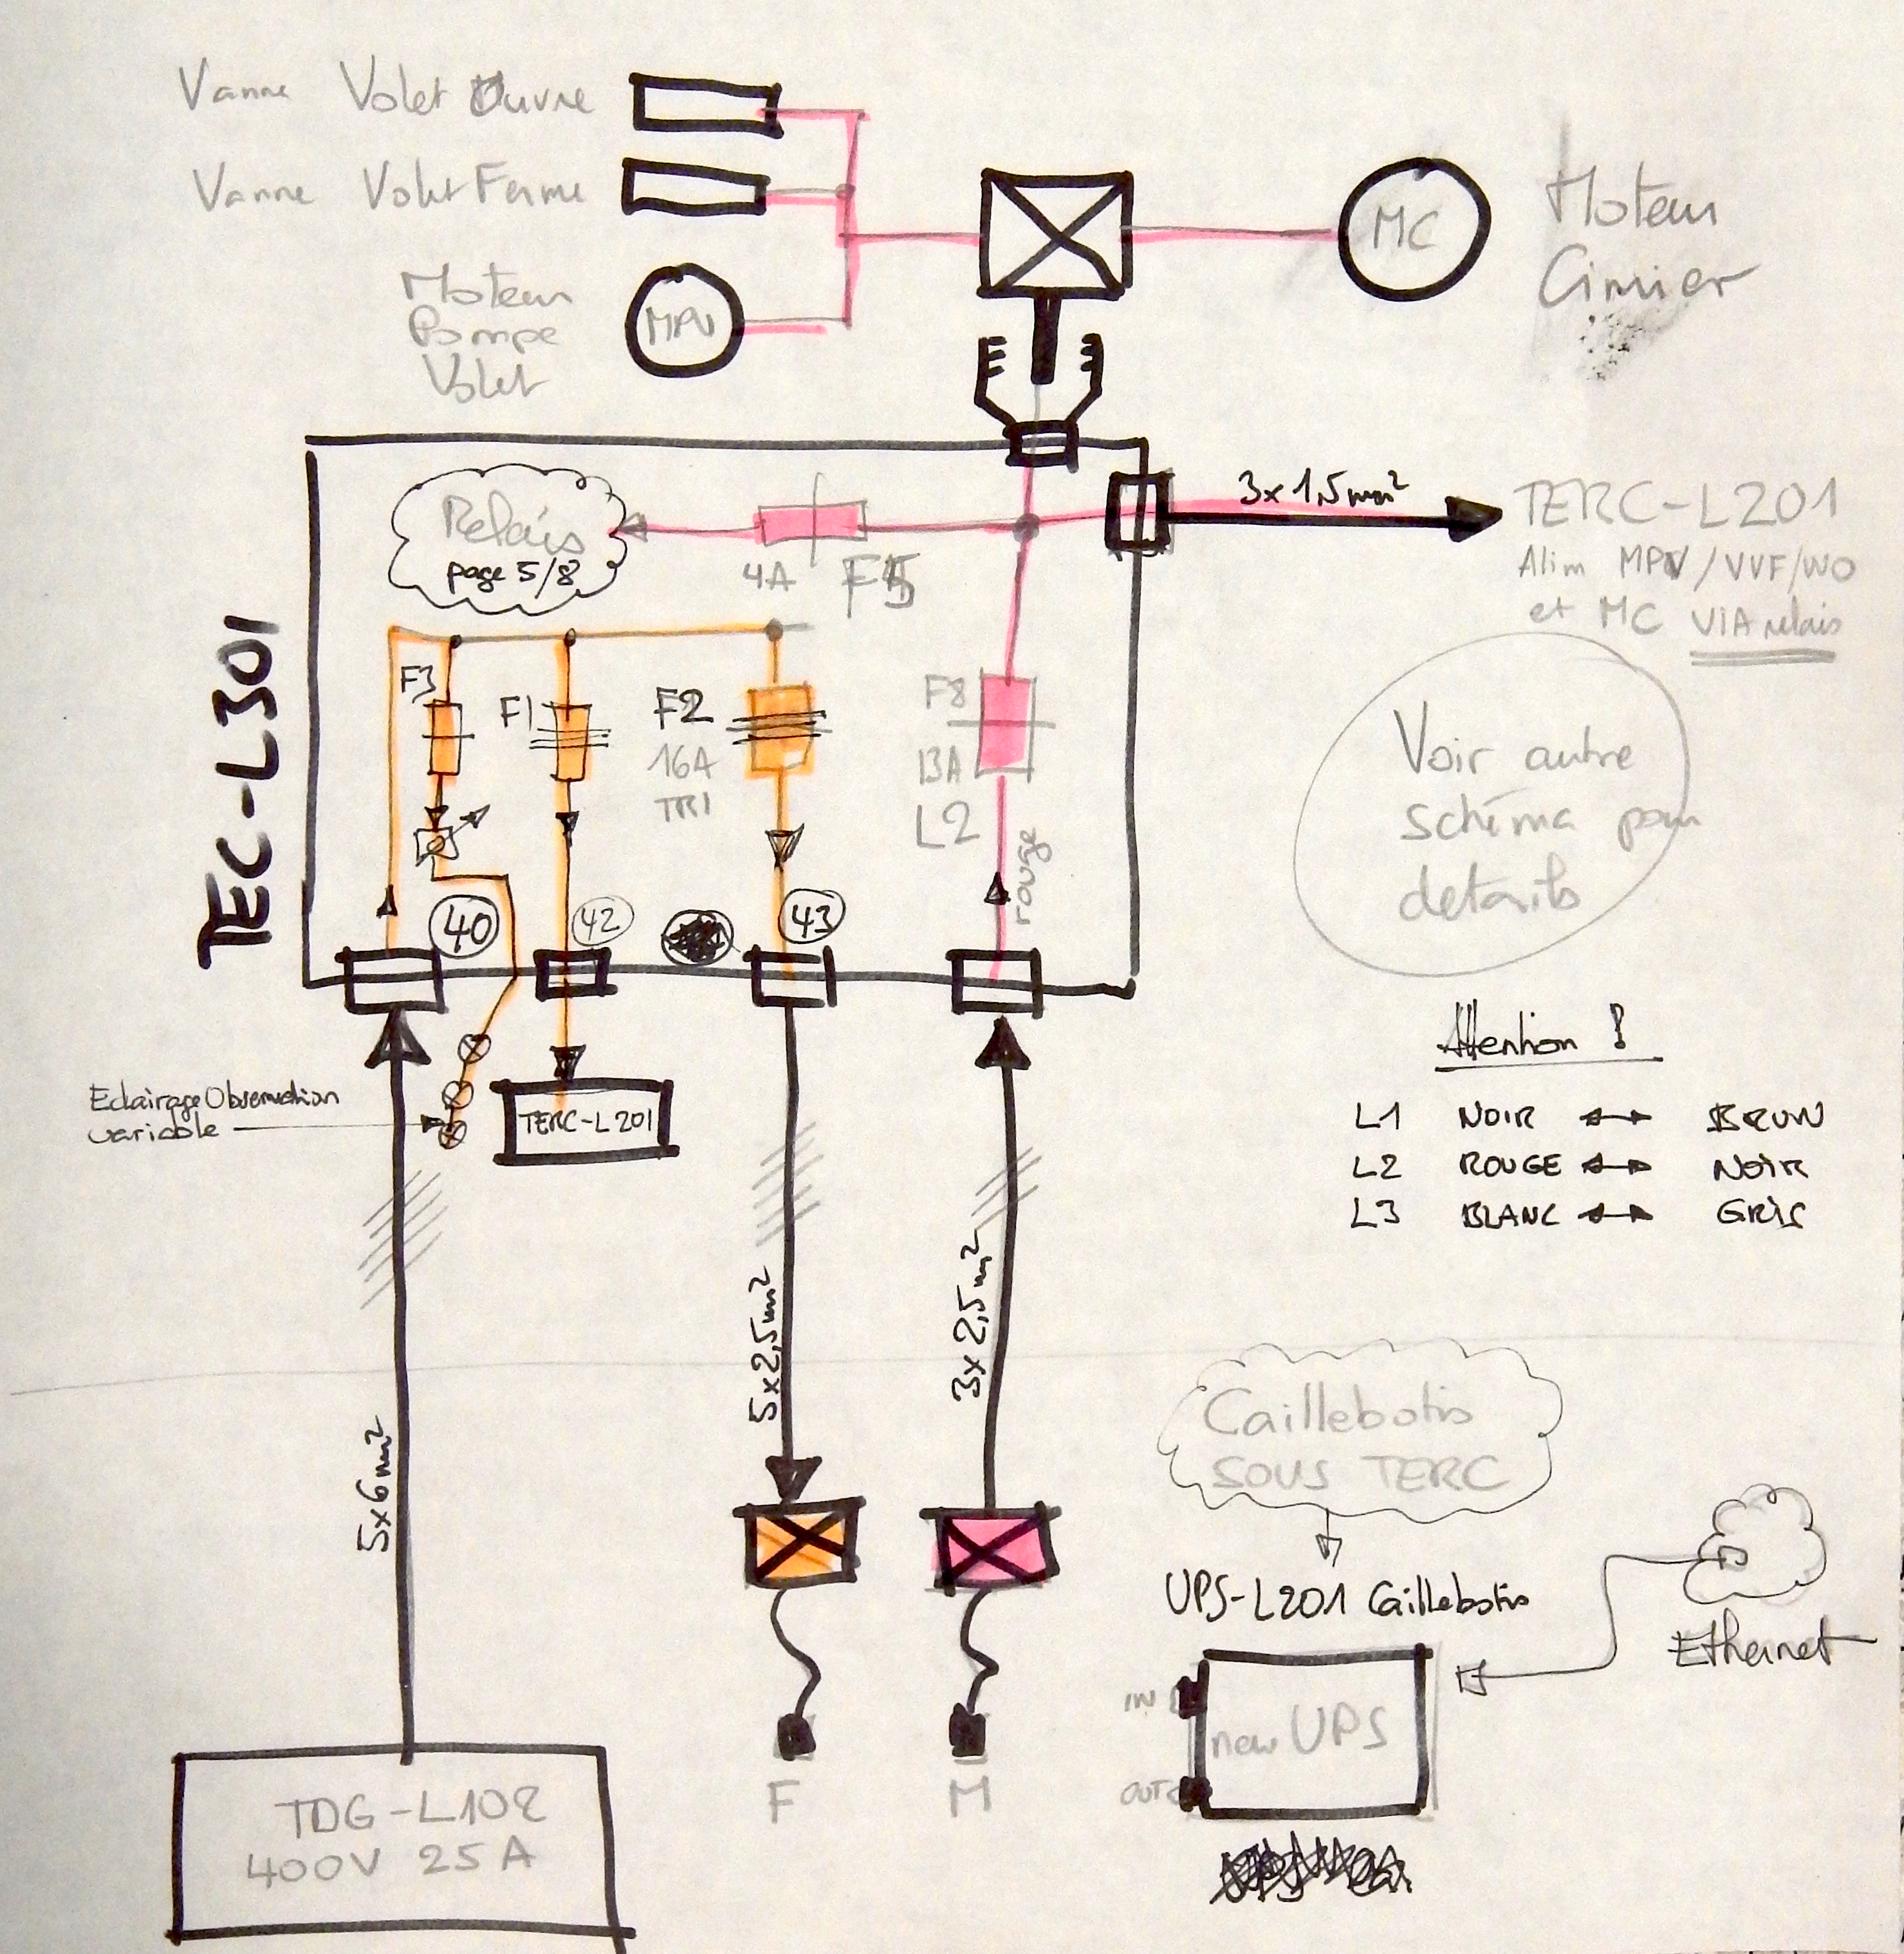 Vanne Volet Ouvre
Vanne Volet Ferme
Moteur
Pompe
Volet
MPV
MC
Moteur
Cimier
3x1,5mm²
TERC-L201
Alim MPV/VVF/VVO
et MC VIA relais
Relais
page 5/8
4A F5
TEC-L301
F3
F1
F2
16A
TRI
F8
13A
L2
rouge
40
42
43
Voir autre
schéma pour
details
Eclairage Observation
variable
TERC-L201
Attention !
L1 NOIR BRUN
L2 ROUGE NOIR
L3 BLANC GRIS
5x6mm²
5x2,5mm²
3x2,5mm²
Caillebotis
SOUS TERC
UPS-L201 Caillebotis
Ethernet
IN
new UPS
OUT
F
M
TDG-L102
400V 25A